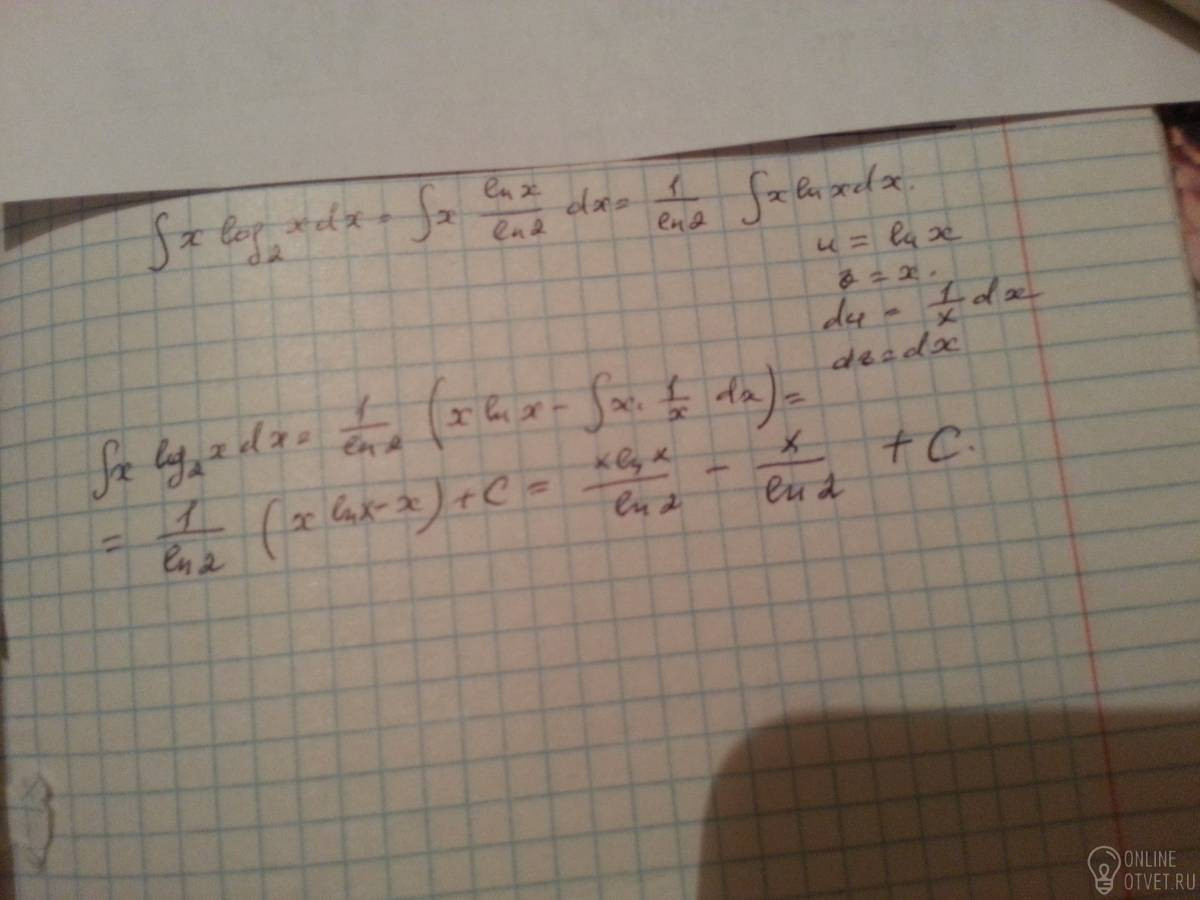 ∫ x log₂ x dx = ∫ x ln x / ln 2 dx = 1 / ln 2 ∫ x ln x dx.
u = ln x
v = x.
du = 1/x dx
dv = dx
∫ x log₂ x dx = 1 / ln 2 (x ln x - ∫ x · 1/x dx) =
= 1 / ln 2 (x ln x - x) + C = x ln x / ln 2 - x / ln 2 + C.
ONLINE
OTVET.RU